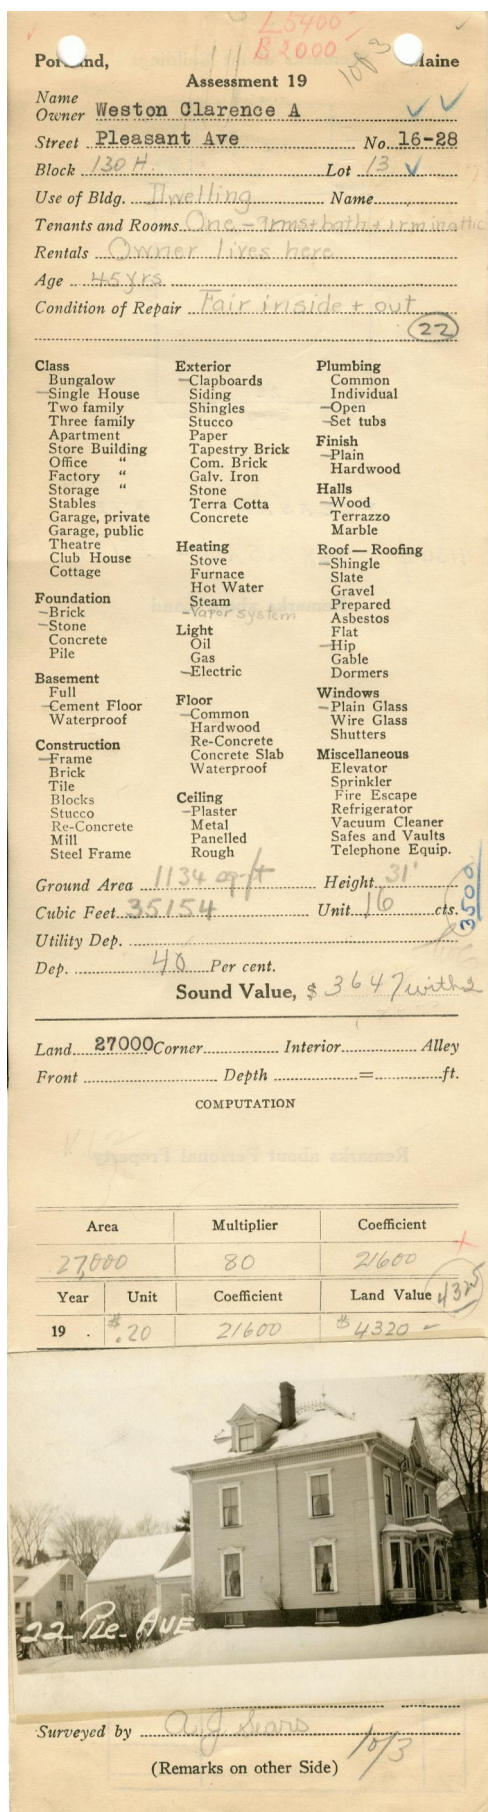 L 5400
B 2000
1 of 3
Portland, Maine
Assessment 19
Name
Owner Weston Clarence A
Street Pleasant Ave No. 16-28
Block 130 H. Lot 13
Use of Bldg. Dwelling Name
Tenants and Rooms One - 9rms+bath+1rm in attic
Rentals Owner lives here
Age 45 yrs
Condition of Repair Fair inside + out
22
Class
Bungalow
Single House
Two family
Three family
Apartment
Store Building
Office "
Factory "
Storage "
Stables
Garage, private
Garage, public
Theatre
Club House
Cottage
Foundation
Brick
Stone
Concrete
Pile
Basement
Full
Cement Floor
Waterproof
Construction
Frame
Brick
Tile
Blocks
Stucco
Re-Concrete
Mill
Steel Frame
Exterior
Clapboards
Siding
Shingles
Stucco
Paper
Tapestry Brick
Com. Brick
Galv. Iron
Stone
Terra Cotta
Concrete
Heating
Stove
Furnace
Hot Water
Steam
Vapor system
Light
Oil
Gas
Electric
Floor
Common
Hardwood
Re-Concrete
Concrete Slab
Waterproof
Ceiling
Plaster
Metal
Panelled
Rough
Plumbing
Common
Individual
Open
Set tubs
Finish
Plain
Hardwood
Halls
Wood
Terrazzo
Marble
Roof — Roofing
Shingle
Slate
Gravel
Prepared
Asbestos
Flat
Hip
Gable
Dormers
Windows
Plain Glass
Wire Glass
Shutters
Miscellaneous
Elevator
Sprinkler
Fire Escape
Refrigerator
Vacuum Cleaner
Safes and Vaults
Telephone Equip.
Ground Area 1134 sq-ft Height 31'
Cubic Feet 35154 Unit 16 cts.
3500
Utility Dep.
Dep. 40 Per cent.
Sound Value, $ 3647 with 2
Land 27000 Corner Interior Alley
Front Depth = ft.
COMPUTATION
Remarks about Personal Property
Area Multiplier Coefficient
27,000 80 21600
Year Unit Coefficient Land Value 4325
19 . $.20 21600 $4320 -
22 Ple. AVE
Surveyed by A J Sears
1 of 3
(Remarks on other Side)